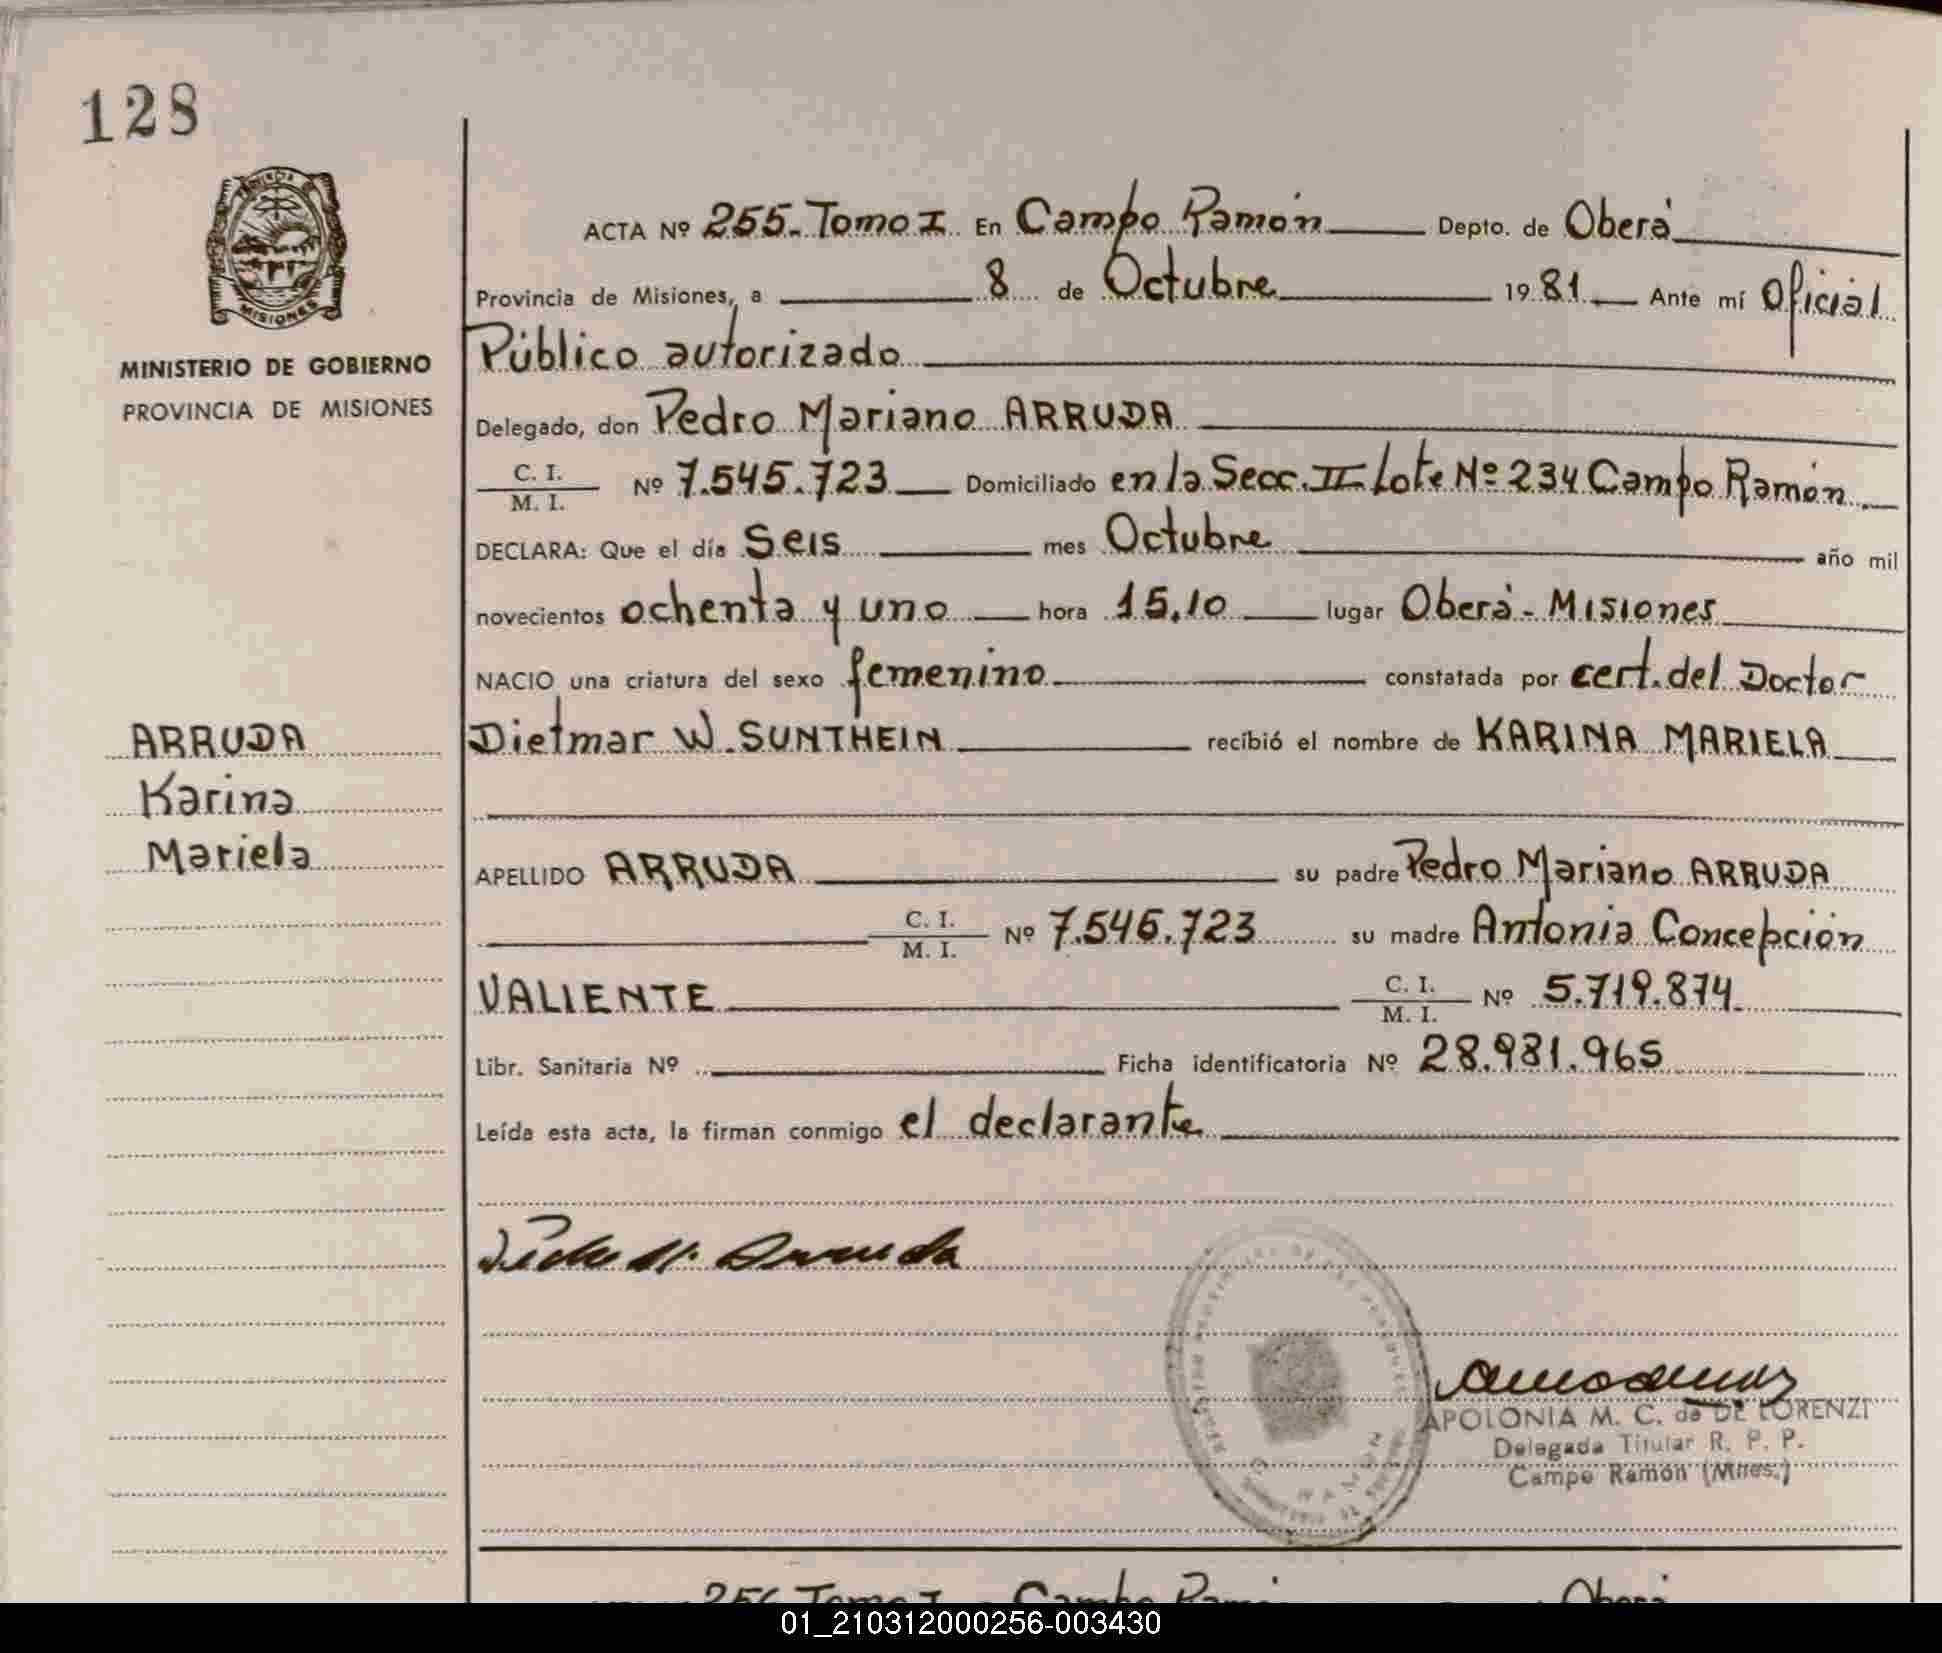 128
PROVINCIA DE
MISIONES
MINISTERIO DE GOBIERNO
PROVINCIA DE MISIONES
ARRUDA
Karina
Mariela
ACTA Nº 255. Tomo I En Campo Ramón Depto. de Oberá
Provincia de Misiones, a 8 de Octubre 1981 Ante mí Oficial
Público autorizado
Delegado, don Pedro Mariano ARRUDA
C. I.
M. I. Nº 7.545.723 Domiciliado en la Secc. II Lote Nº 234 Campo Ramón
DECLARA: Que el día Seis mes Octubre año mil
novecientos ochenta y uno hora 15,10 lugar Oberá - Misiones
NACIO una criatura del sexo femenino constatada por cert. del Doctor
Dietmar W. SUNTHEIN recibió el nombre de KARINA MARIELA
APELLIDO ARRUDA su padre Pedro Mariano ARRUDA
C. I.
M. I. Nº 7.545.723 su madre Antonia Concepción
VALIENTE C. I.
M. I. Nº 5.719.874
Libr. Sanitaria Nº Ficha identificatoria Nº 28.981.965
Leída esta acta, la firman conmigo el declarante
Pedro M. Arruda
APOLONIA M. C. de DE LORENZI
Delegada Titular R. P. P.
Campo Ramón (Mnes.)
256 Tomo I Campo Ramón Oberá
01_210312000256-003430